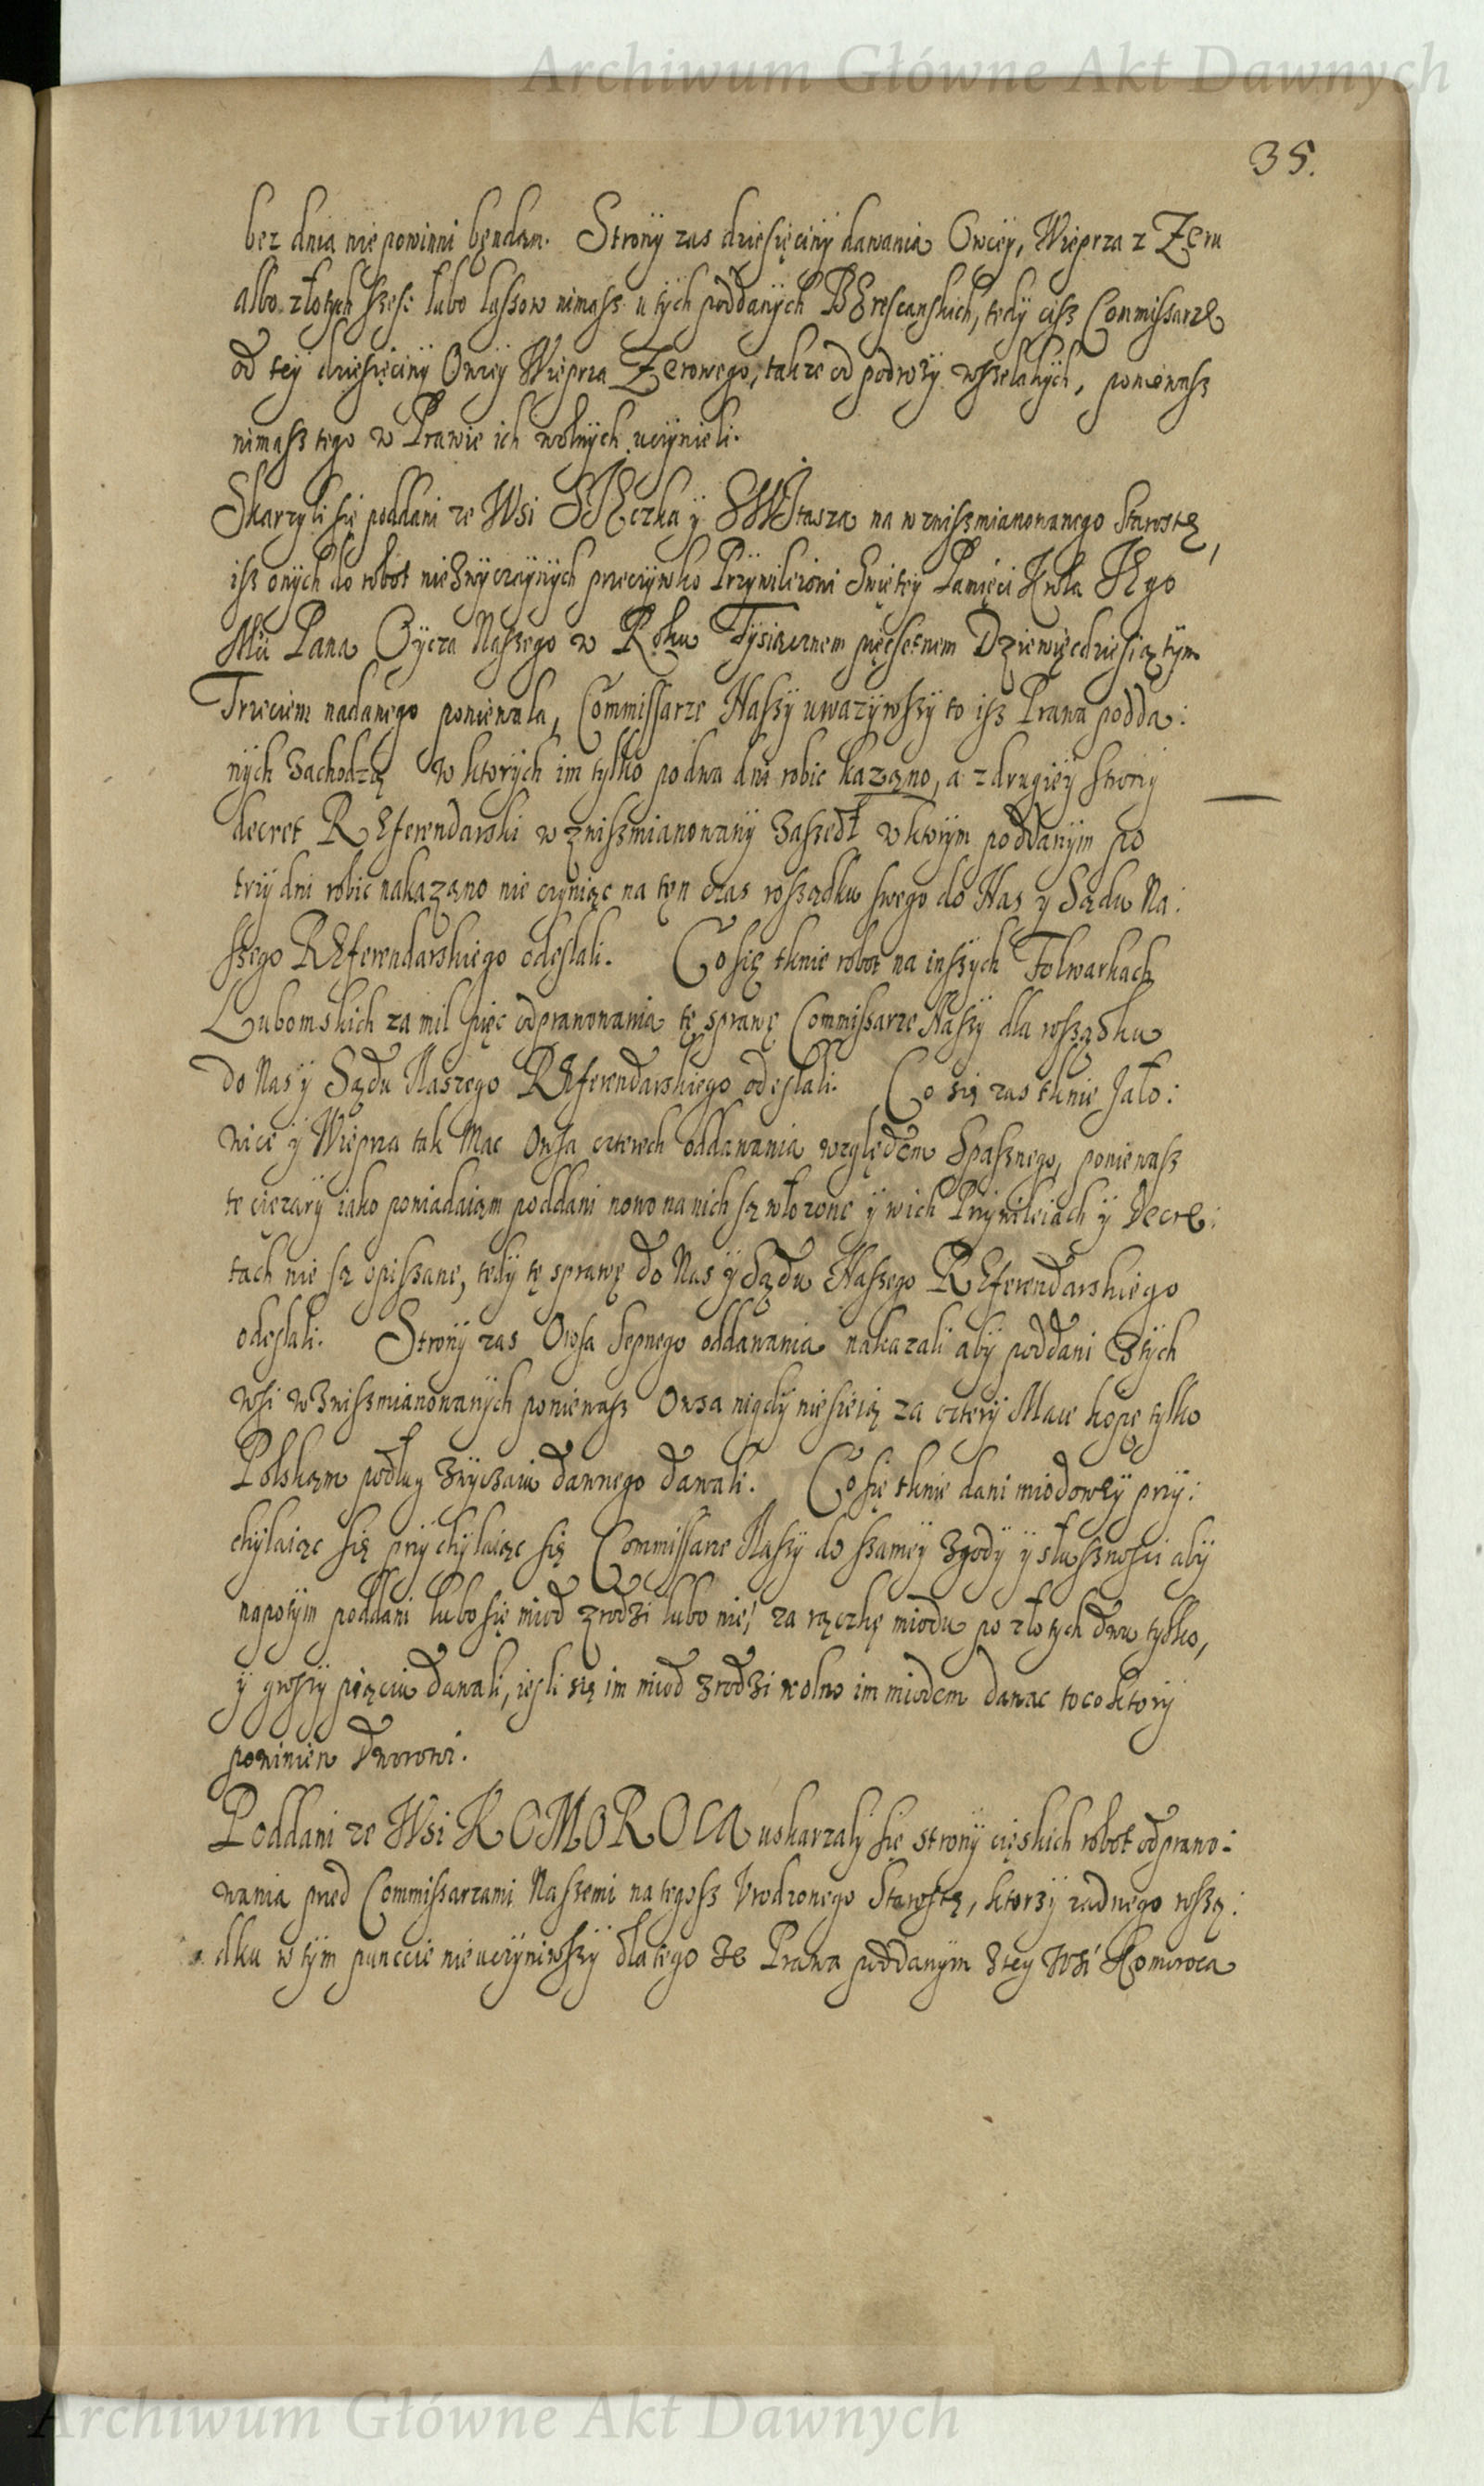 Archiwum Główne Akt Dawnych
35.
bez dnia nie powinni będam. Strony zas dziesięciny dawania Owcey, Wieprza z Zeru
albo złotych szesc lubo lassow nimasz u tych poddanych BErescanskich, tedy cisz Commissarze
od tey dziesięciny Owcey Wieprza Zerowego, takze od podrozy wszelakych, poniewasz
nimasz tego w Prawie ich wolnych uczynieli.
Skarzyli się poddani ze Wsi y na wzniszmianowanego Starostę,
isz onych do robot nieZwyczaynych przeciwko Przywileiowi Swiętey Pamięci Krola IEgo
Mći Pana Oyca Naszego w Roku Tysiącznem pięcsetnem Dziewięcdziesiątym
Trzeciem nadanego poniewala, Commissarze Naszy uwazywszy to isz Prawa podda:
nych Zachodzą w ktorych im tylko po dwa dni robic kazano, a z drugiey strony
decret REferendarski wzniszmianowany Zaszedł w ktorym poddanym po
trzy dni robic nakazano nie czyniąc na ten czas rossądku swego do Nas y Sądu Na:
szego REferendarskiego odeslali. Co się tknie robot na inszych Folwarkach
Lubomskich za mil pięc odprawowania tę sprawę Commissarze Naszy dla rossądku
do Nas y Sądu Naszego REferendarskiego odeslali. Co się zas tknie Jało:
wice y Wieprza tak Mac Owsa czterech oddawania względem Spasznego, poniewasz
te cięzary iako powiadaiąm poddani nowo na nich są włozone y w ich Przywileiach y Decre:
tach nie są opiszane, tedy tę sprawę do Nas y Sądu Naszego REferendarskiego
odeslali. Strony zas Owsa Sepnego oddawania nakazali aby poddani Z tych
wsi wZniszmianowanych poniewasz Owsa nigdy niesieią za cztery Mace kopę tylko
Polskąm podlug Zwyczaiu dawnego dawali. Co się tknie dani miodowey przy:
chylaiąc się przychylaiąc się Commissarze Naszy do szamey Zgody y słusznosci aby
napotym poddani lubo się miod zrodzi lubo nie, za rączkę miodu po złotych dwu tylko,
y groszy pięciu dawali, iesli się im miod Zrodzi wolno im miodem dawac to co ktory
powinien Dworowi.
Poddani ze Wsi KOMOROCA uskarzaly się strony cięskich robot odprawo:
wania pred Commissarzami Naszemi na tegosz Urodzonego Starostę, ktorzy zadnego rossą:
dku w tym punccie nie uczyniwszy dla tego Ze Prawa poddanym Z tey Wsi Komoroca
Archiwum Główne Akt Dawnych